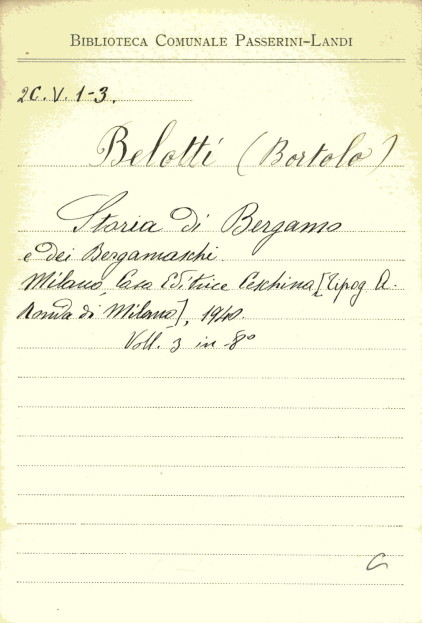 BIBLIOTECA COMUNALE PASSERINI-LANDI
2C.V.1-3.
Belotti (Bortolo)
Storia di Bergamo
e dei Bergamaschi.
Milano, Casa Editrice Ceschina [tipog A.
di Milano], 1940.
Voll. 3 in -8°
C